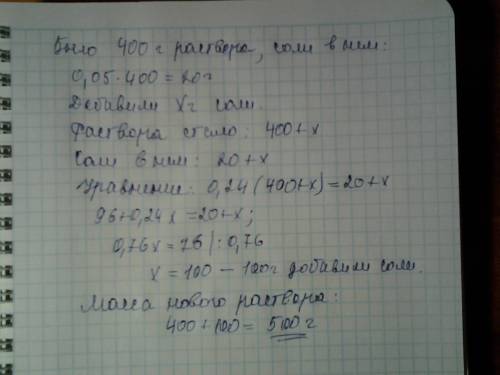 Было 400 г раствора, соли в нем:
0,05·400=20г
Добавили Xг соли.
Раствора стало: 400+x
Соли в нем: 20+x
Уравнение: 0,24(400+x)=20+x
96+0,24x=20+x;
0,76x=76|:0,76
x=100 – 100г добавили соли.
Масса нового раствора:
400+100=500г